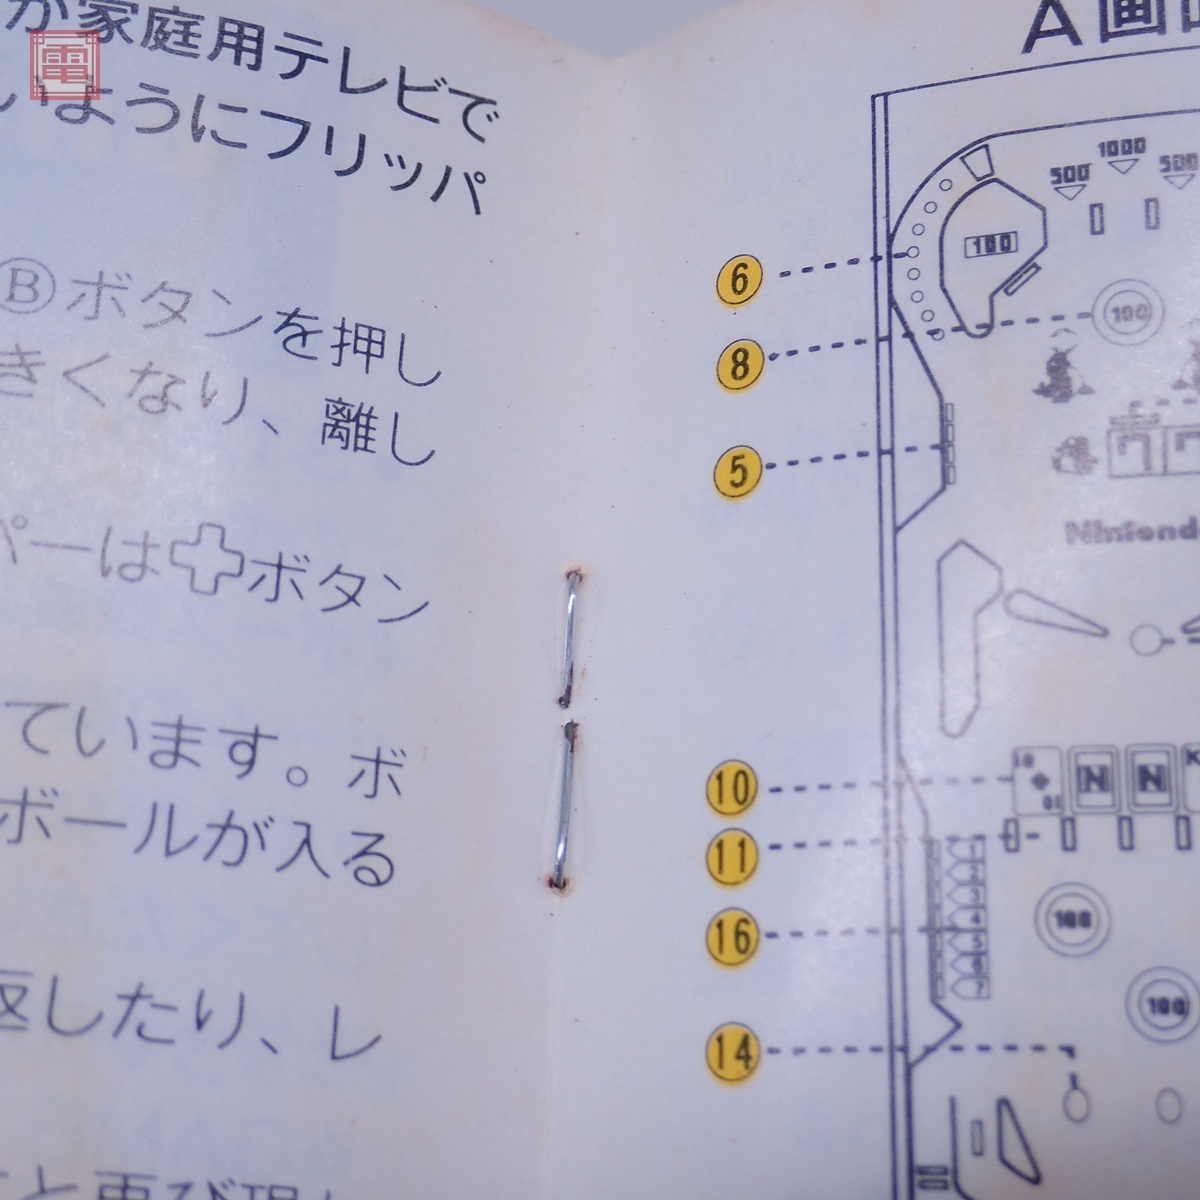 電
が家庭用テレビで
いようにフリッパ
Ⓑボタンを押し
きくなり、離し
パーは✚ボタン
ています。ボ
ボールが入る
返したり、レ
と再び現
A画
500
1000
500
100
6
8
100
5
Nintendo
10
10
N
N
K
10
11
1
2
3
4
5
6
7
16
100
100
14